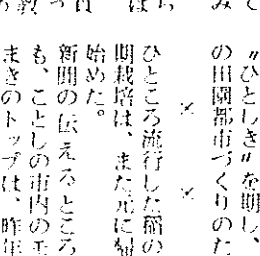 みて
〃ひとしき〃を期し、
の田園都市づくりのた
× ×
ひところ流行した稲の
期栽培は、また元に帰
始めた。
新聞の伝えるところ
も、ことしの市内のモ
まきのトップは、昨年